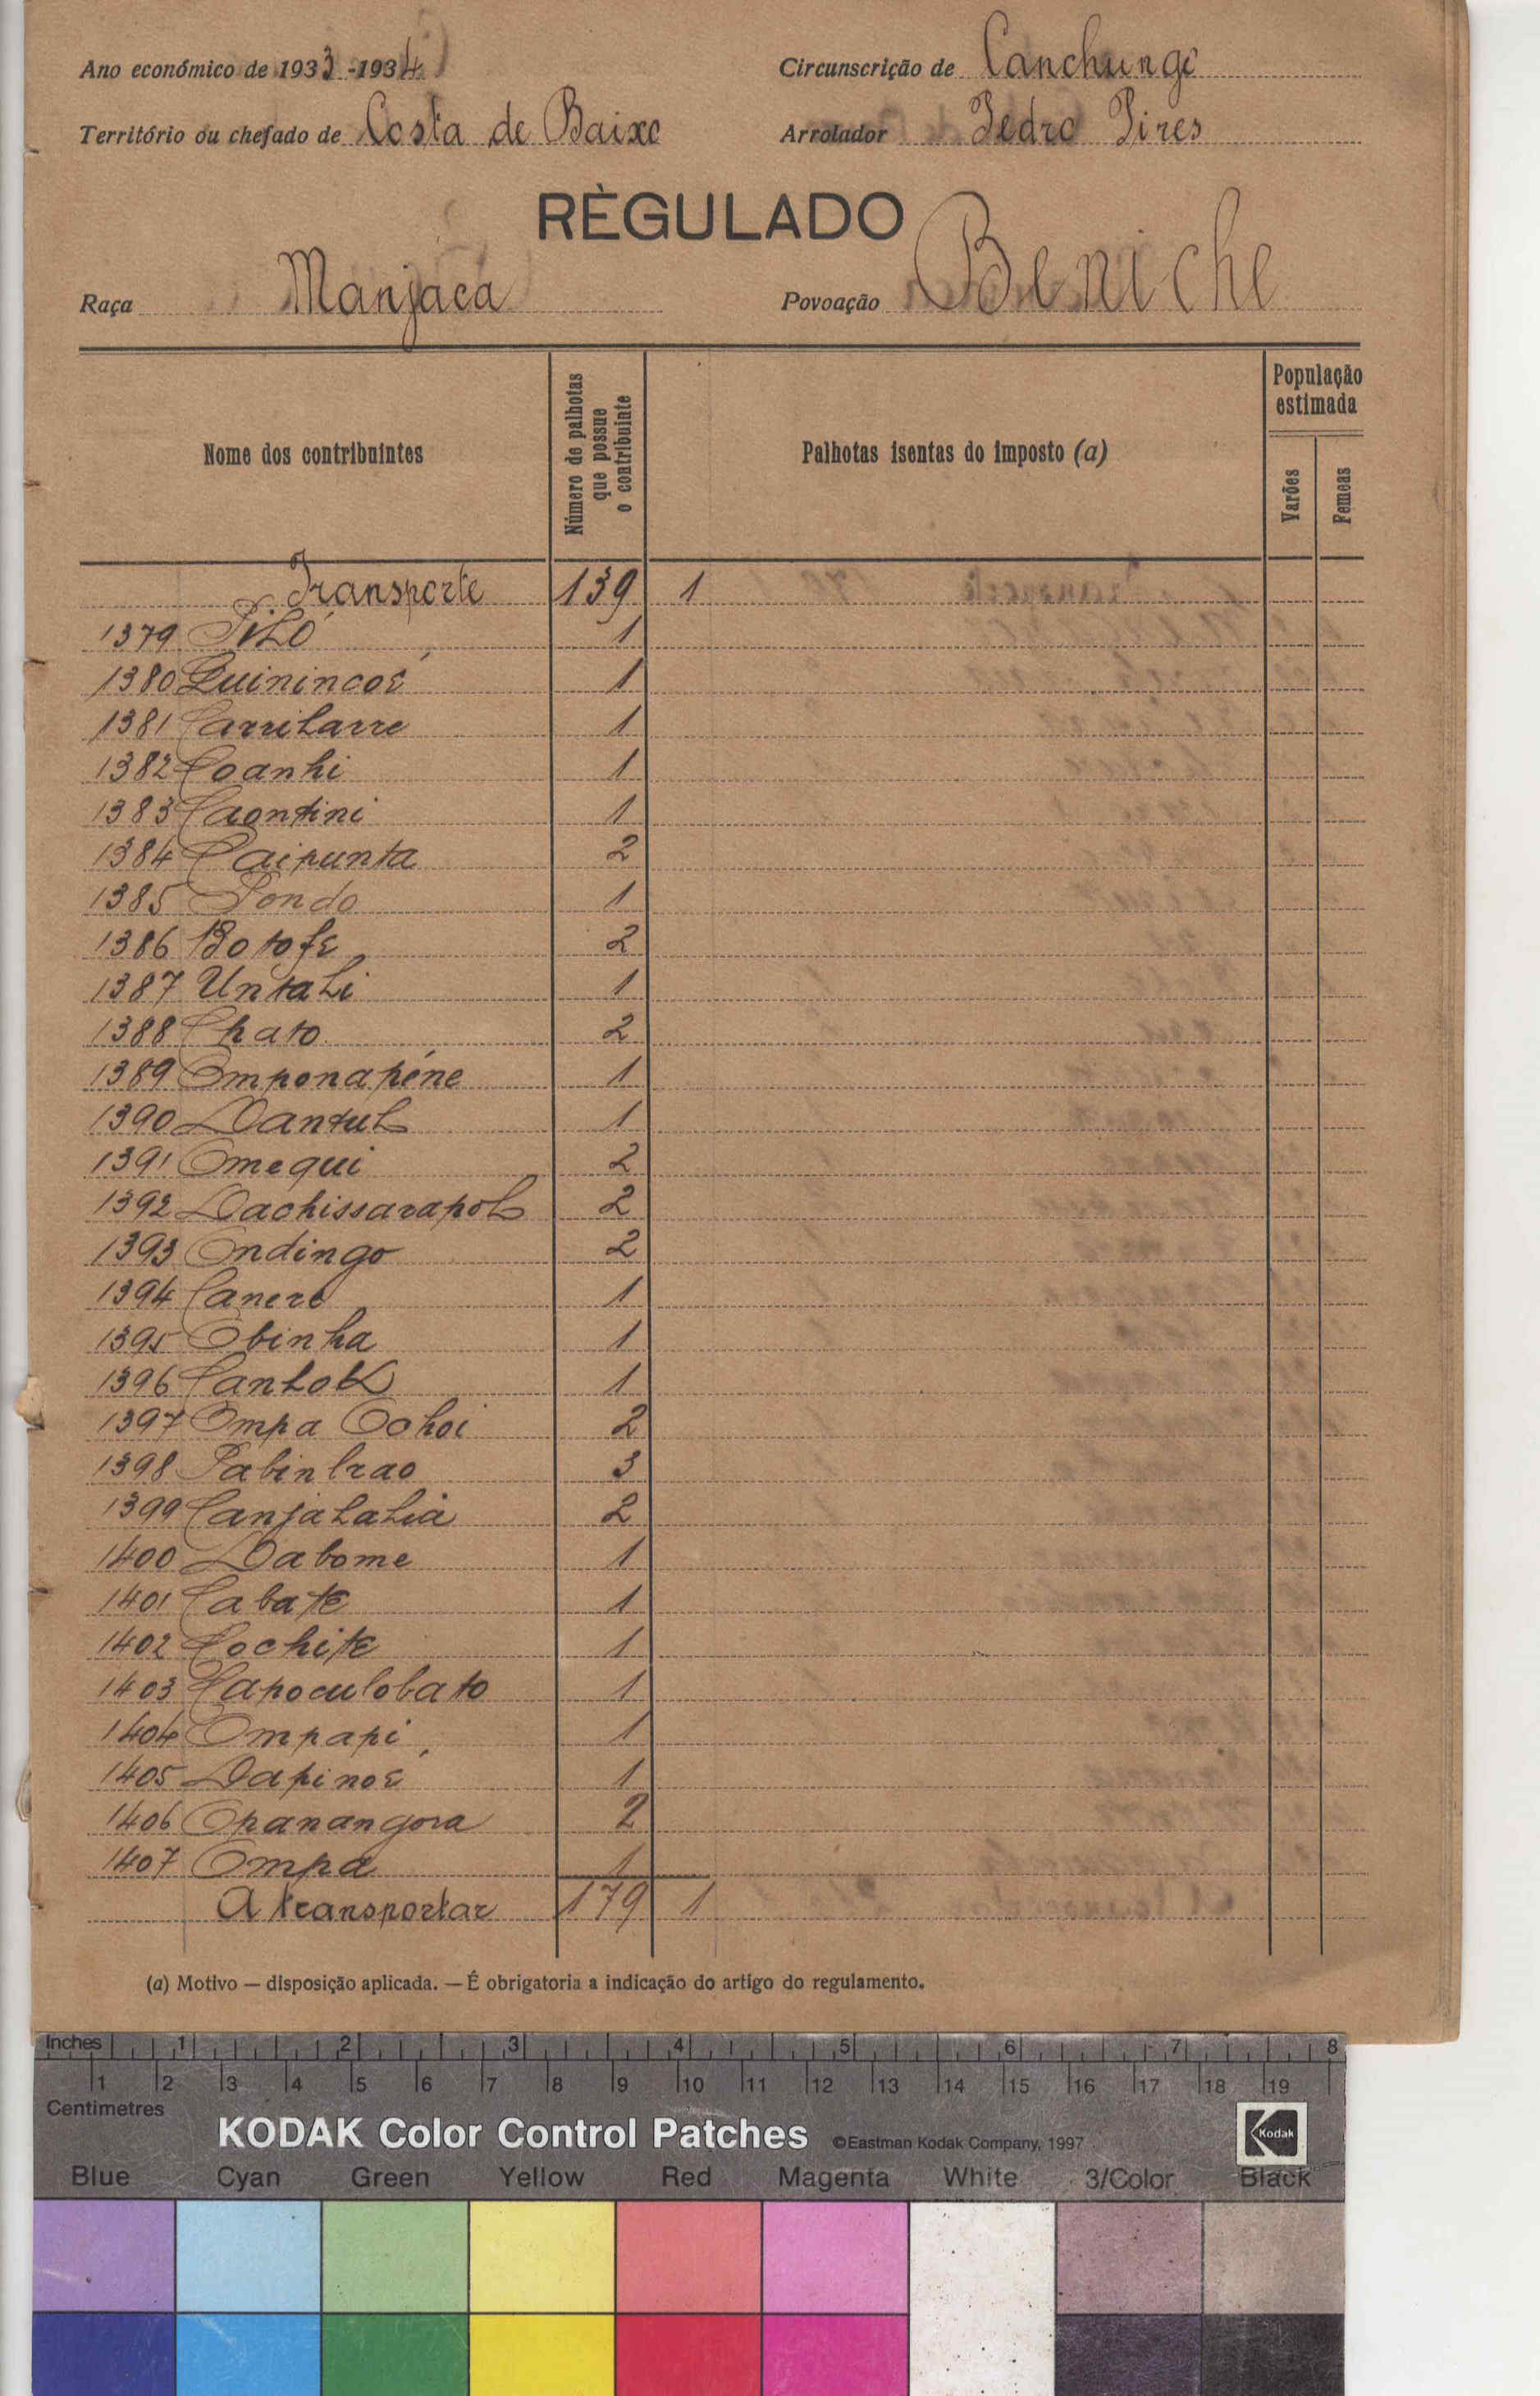 Ano económico de 1933-1934
Circunscrição de Canchungo
Território ou chefado de Costa de Baixo
Arrolador Pedro Pires
RÈGULADO
Raça Manjaca
Povoação Beniche
Nome dos contribuintes
Número de palhotas que possue o contribuinte
Palhotas isentas do imposto (a)
População estimada
Varões
Femeas
Transporte 139 1
1379 Piló 1
1380 Quinincoé 1
1381 Carrilarre 1
1382 Coanhi 1
1383 Caontini 1
1384 Caipunta 2
1385 Pondo 1
1386 Botofe 2
1387 Untali 1
1388 Chato 2
1389 Omponapéne 1
1390 Dantul 1
1391 Omequi 2
1392 Dachissarapol 2
1393 Ondingo 2
1394 Canere 1
1395 Obinha 1
1396 Canlok 1
1397 Ompa Ochoi 2
1398 Pabinlrao 3
1399 Canjalalia 2
1400 Dabome 1
1401 Cabate 1
1402 Cochite 1
1403 Capoculobato 1
1404 Ompapi 1
1405 Dapinoé 1
1406 Opanangora 2
1407 Ompa 1
A transportar 179 1
(a) Motivo — disposição aplicada. — É obrigatoria a indicação do artigo do regulamento.
Inches 1 2 3 4 5 6 7 8
1 2 3 4 5 6 7 8 9 10 11 12 13 14 15 16 17 18 19
Centimetres
KODAK Color Control Patches ©Eastman Kodak Company, 1997 Kodak
Blue Cyan Green Yellow Red Magenta White 3/Color Black